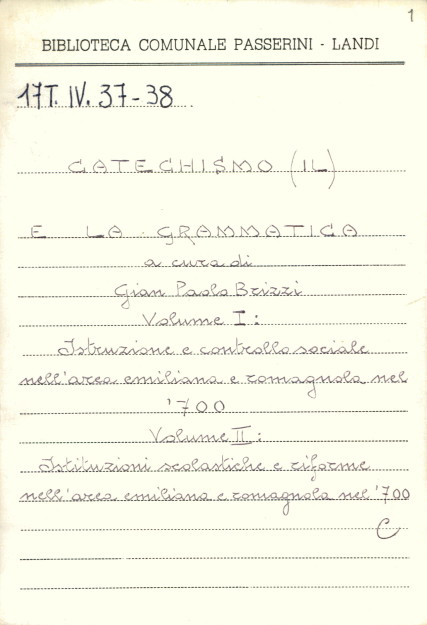 1
BIBLIOTECA COMUNALE PASSERINI - LANDI
17T. IV. 37-38
CATECHISMO (IL)
E LA GRAMMATICA
a cura di
Gian Paolo Brizzi
Volume I:
Istruzione e controllo sociale
nell'area emiliana e romagnola nel
'700
Volume II:
Istituzioni scolastiche e riforme
nell'area emiliana e romagnola nel '700
C